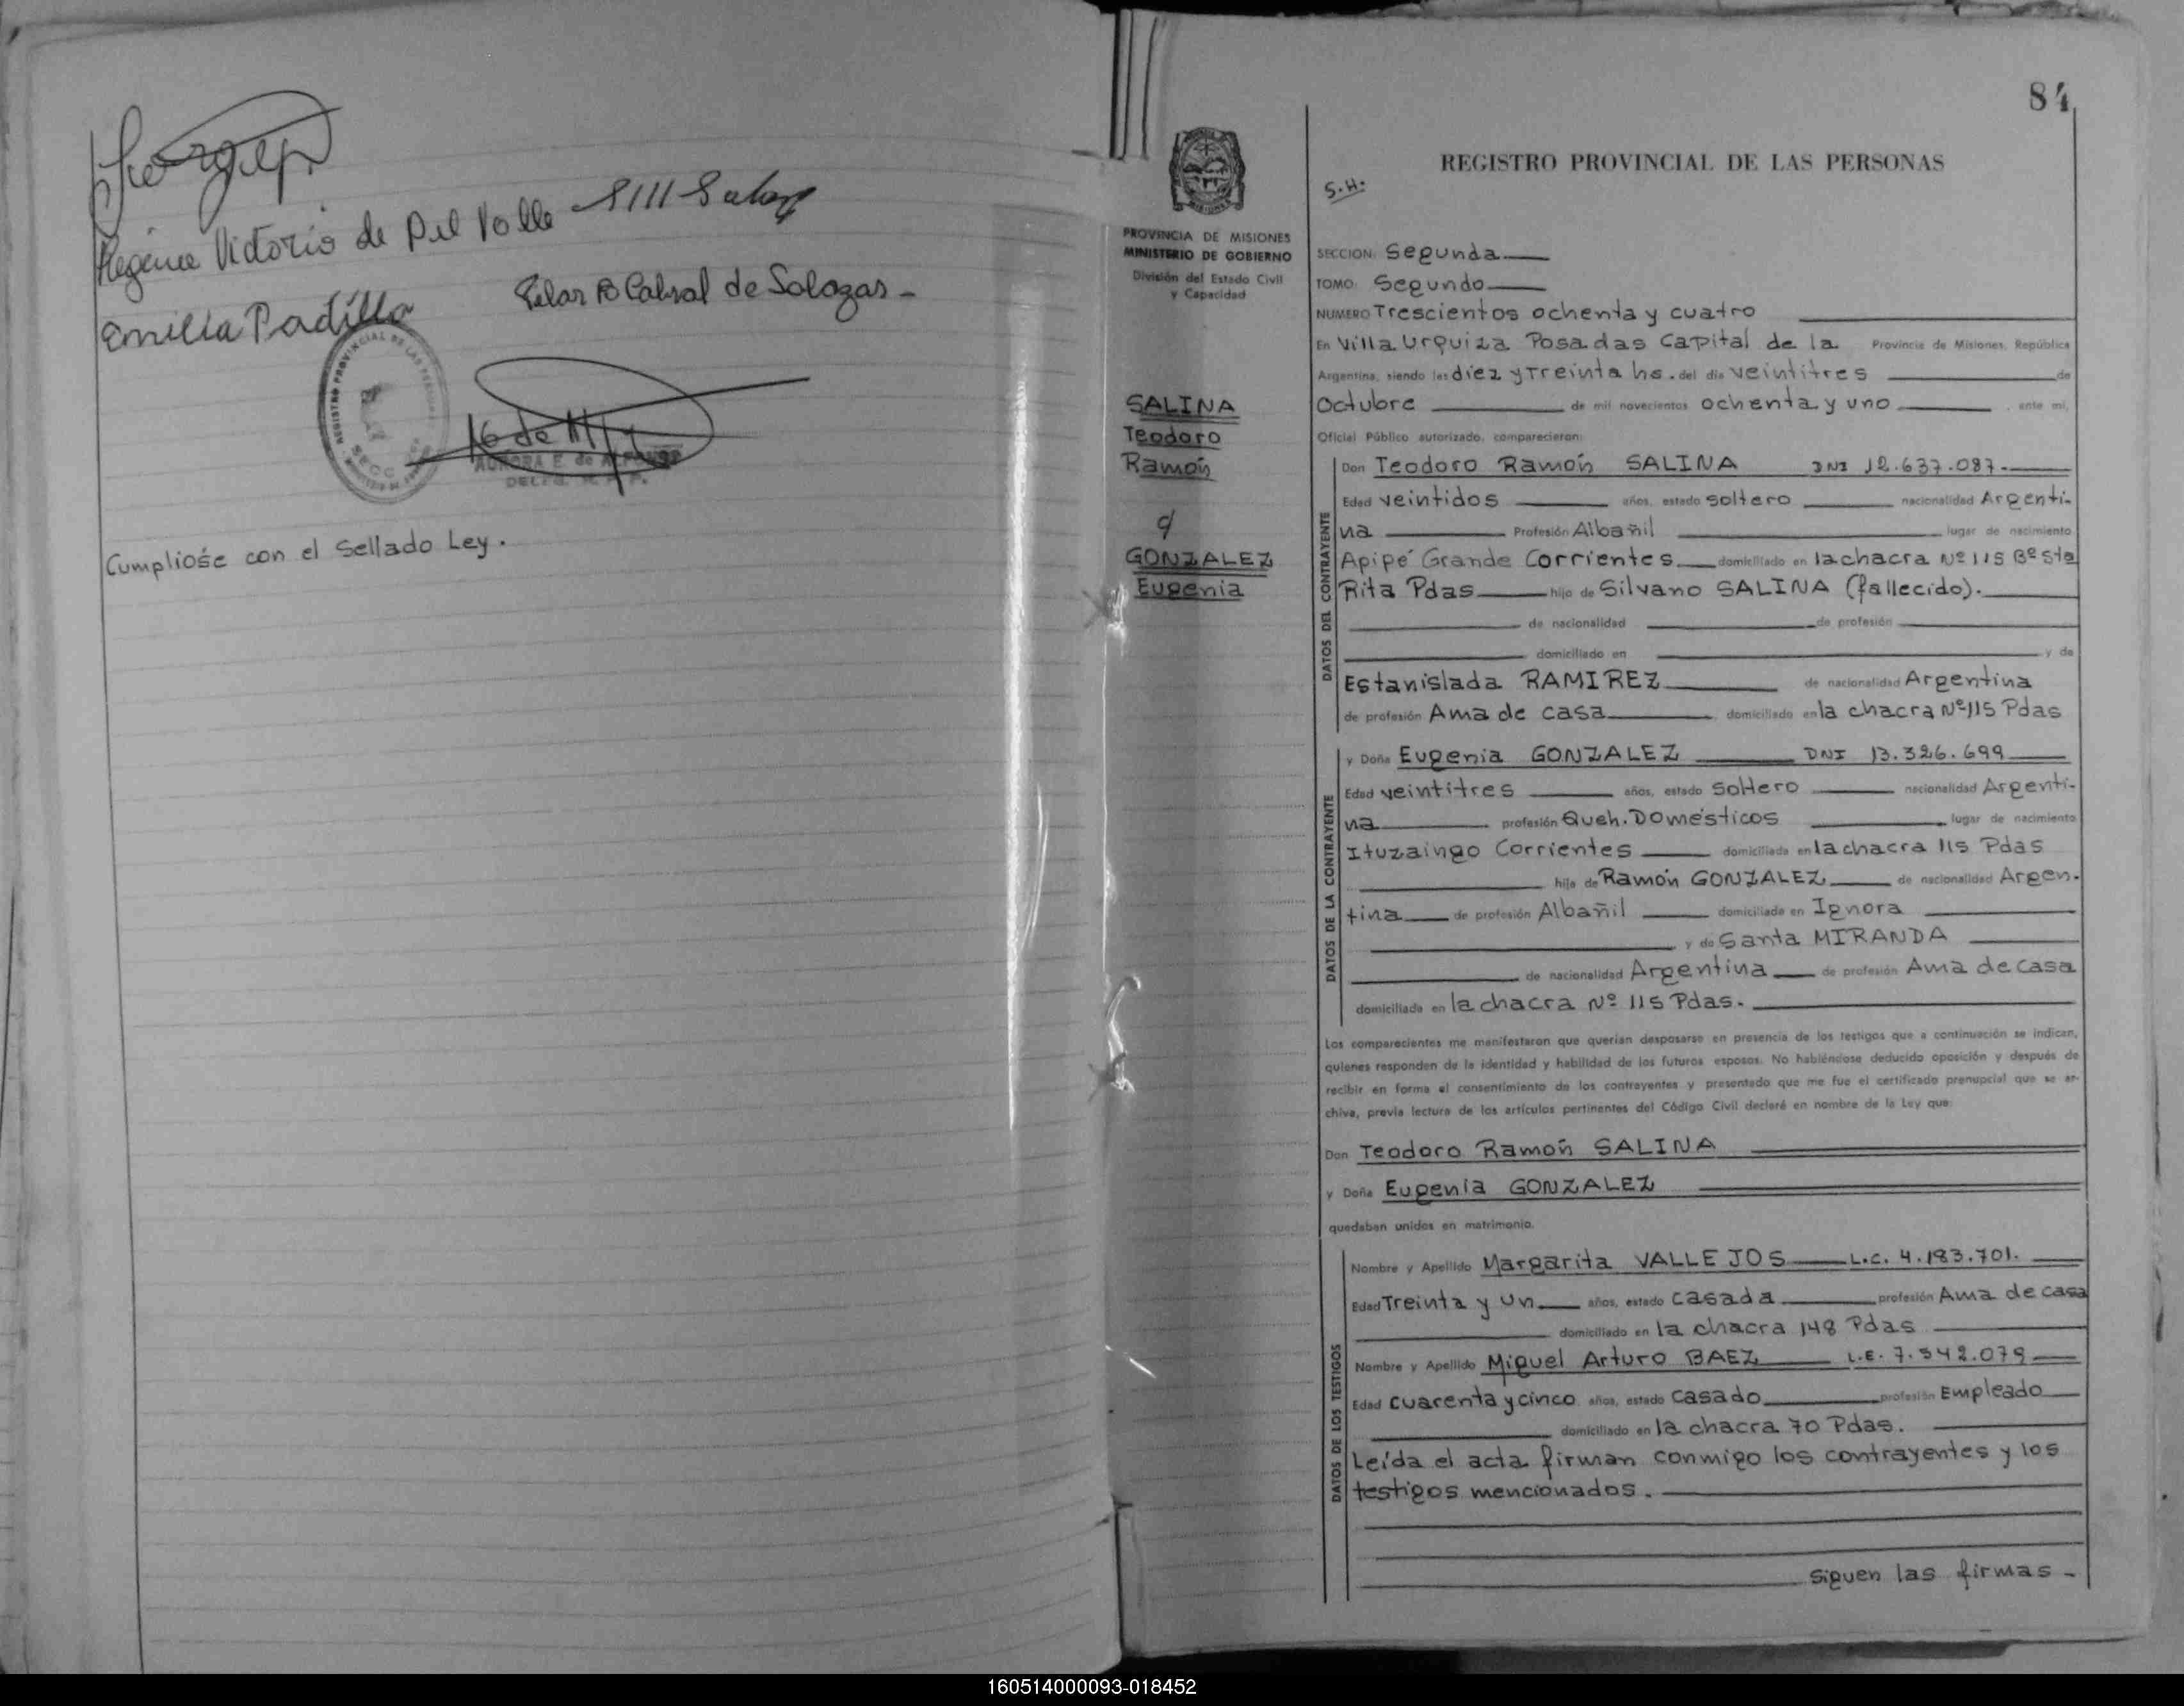 Regina Victoria de Del Valle
Emilia Padilla
Pilar B Cabral de Salazar -
REGISTRO PROVINCIAL DE LAS PERSONAS
SECC
AURORA E. de ALFONSO
Cumpliose con el Sellado Ley.
84
PROVINCIA DE MISIONES
MINISTERIO DE GOBIERNO
División del Estado Civil
y Capacidad
SALINA
Teodoro
Ramón
c/
GONZALEZ
Eugenia
REGISTRO PROVINCIAL DE LAS PERSONAS
S.H.
SECCION: Segunda
TOMO: Segundo
NUMERO Trescientos ochenta y cuatro
En Villa Urquiza Posadas Capital de la Provincia de Misiones, República
Argentina, siendo las diez y Treinta hs. del día veintitres de
Octubre de mil novecientos ochenta y uno, ante mi,
Oficial Público autorizado, comparecieron:
DATOS DEL CONTRAYENTE
Don Teodoro Ramón SALINA DNI 12.637.087.
Edad veintidos años, estado soltero nacionalidad Argenti-
na Profesión Albañil lugar de nacimiento
Apipé Grande Corrientes domiciliado en la chacra Nº 115 Bº Sta
Rita Pdas hijo de Silvano SALINA (fallecido).
de nacionalidad de profesión
domiciliado en y de
Estanislada RAMIREZ de nacionalidad Argentina
de profesión Ama de casa domiciliado en la chacra Nº 115 Pdas
DATOS DE LA CONTRAYENTE
y Doña Eugenia GONZALEZ DNI 13.326.699
Edad veintitres años, estado Soltero nacionalidad Argenti-
na profesión Queh. Domésticos lugar de nacimiento
Ituzaingo Corrientes domiciliada en la chacra 115 Pdas
hija de Ramón GONZALEZ de nacionalidad Argen-
tina de profesión Albañil domiciliado en Ignora
y de Santa MIRANDA
de nacionalidad Argentina de profesión Ama de casa
domiciliada en la chacra Nº 115 Pdas.
Los comparecientes me manifestaron que querían desposarse en presencia de los testigos que a continuación se indican,
quienes responden de la identidad y habilidad de los futuros esposos. No habiéndose deducido oposición y después de
recibir en forma el consentimiento de los contrayentes y presentado que me fue el certificado prenupcial que se ar-
chiva, previa lectura de los artículos pertinentes del Código Civil declaré en nombre de la Ley que:
Don Teodoro Ramón SALINA
y Doña Eugenia GONZALEZ
quedaban unidos en matrimonio.
DATOS DE LOS TESTIGOS
Nombre y Apellido Margarita VALLEJOS L.C. 4.183.701.
Edad Treinta y un años, estado casada profesión Ama de casa
domiciliado en la chacra 148 Pdas
Nombre y Apellido Miguel Arturo BAEZ L.E. 7.542.079
Edad cuarenta y cinco años, estado casado profesión Empleado
domiciliado en la chacra 70 Pdas.
Leída el acta firman conmigo los contrayentes y los
testigos mencionados.
Siguen las firmas -
160514000093-018452